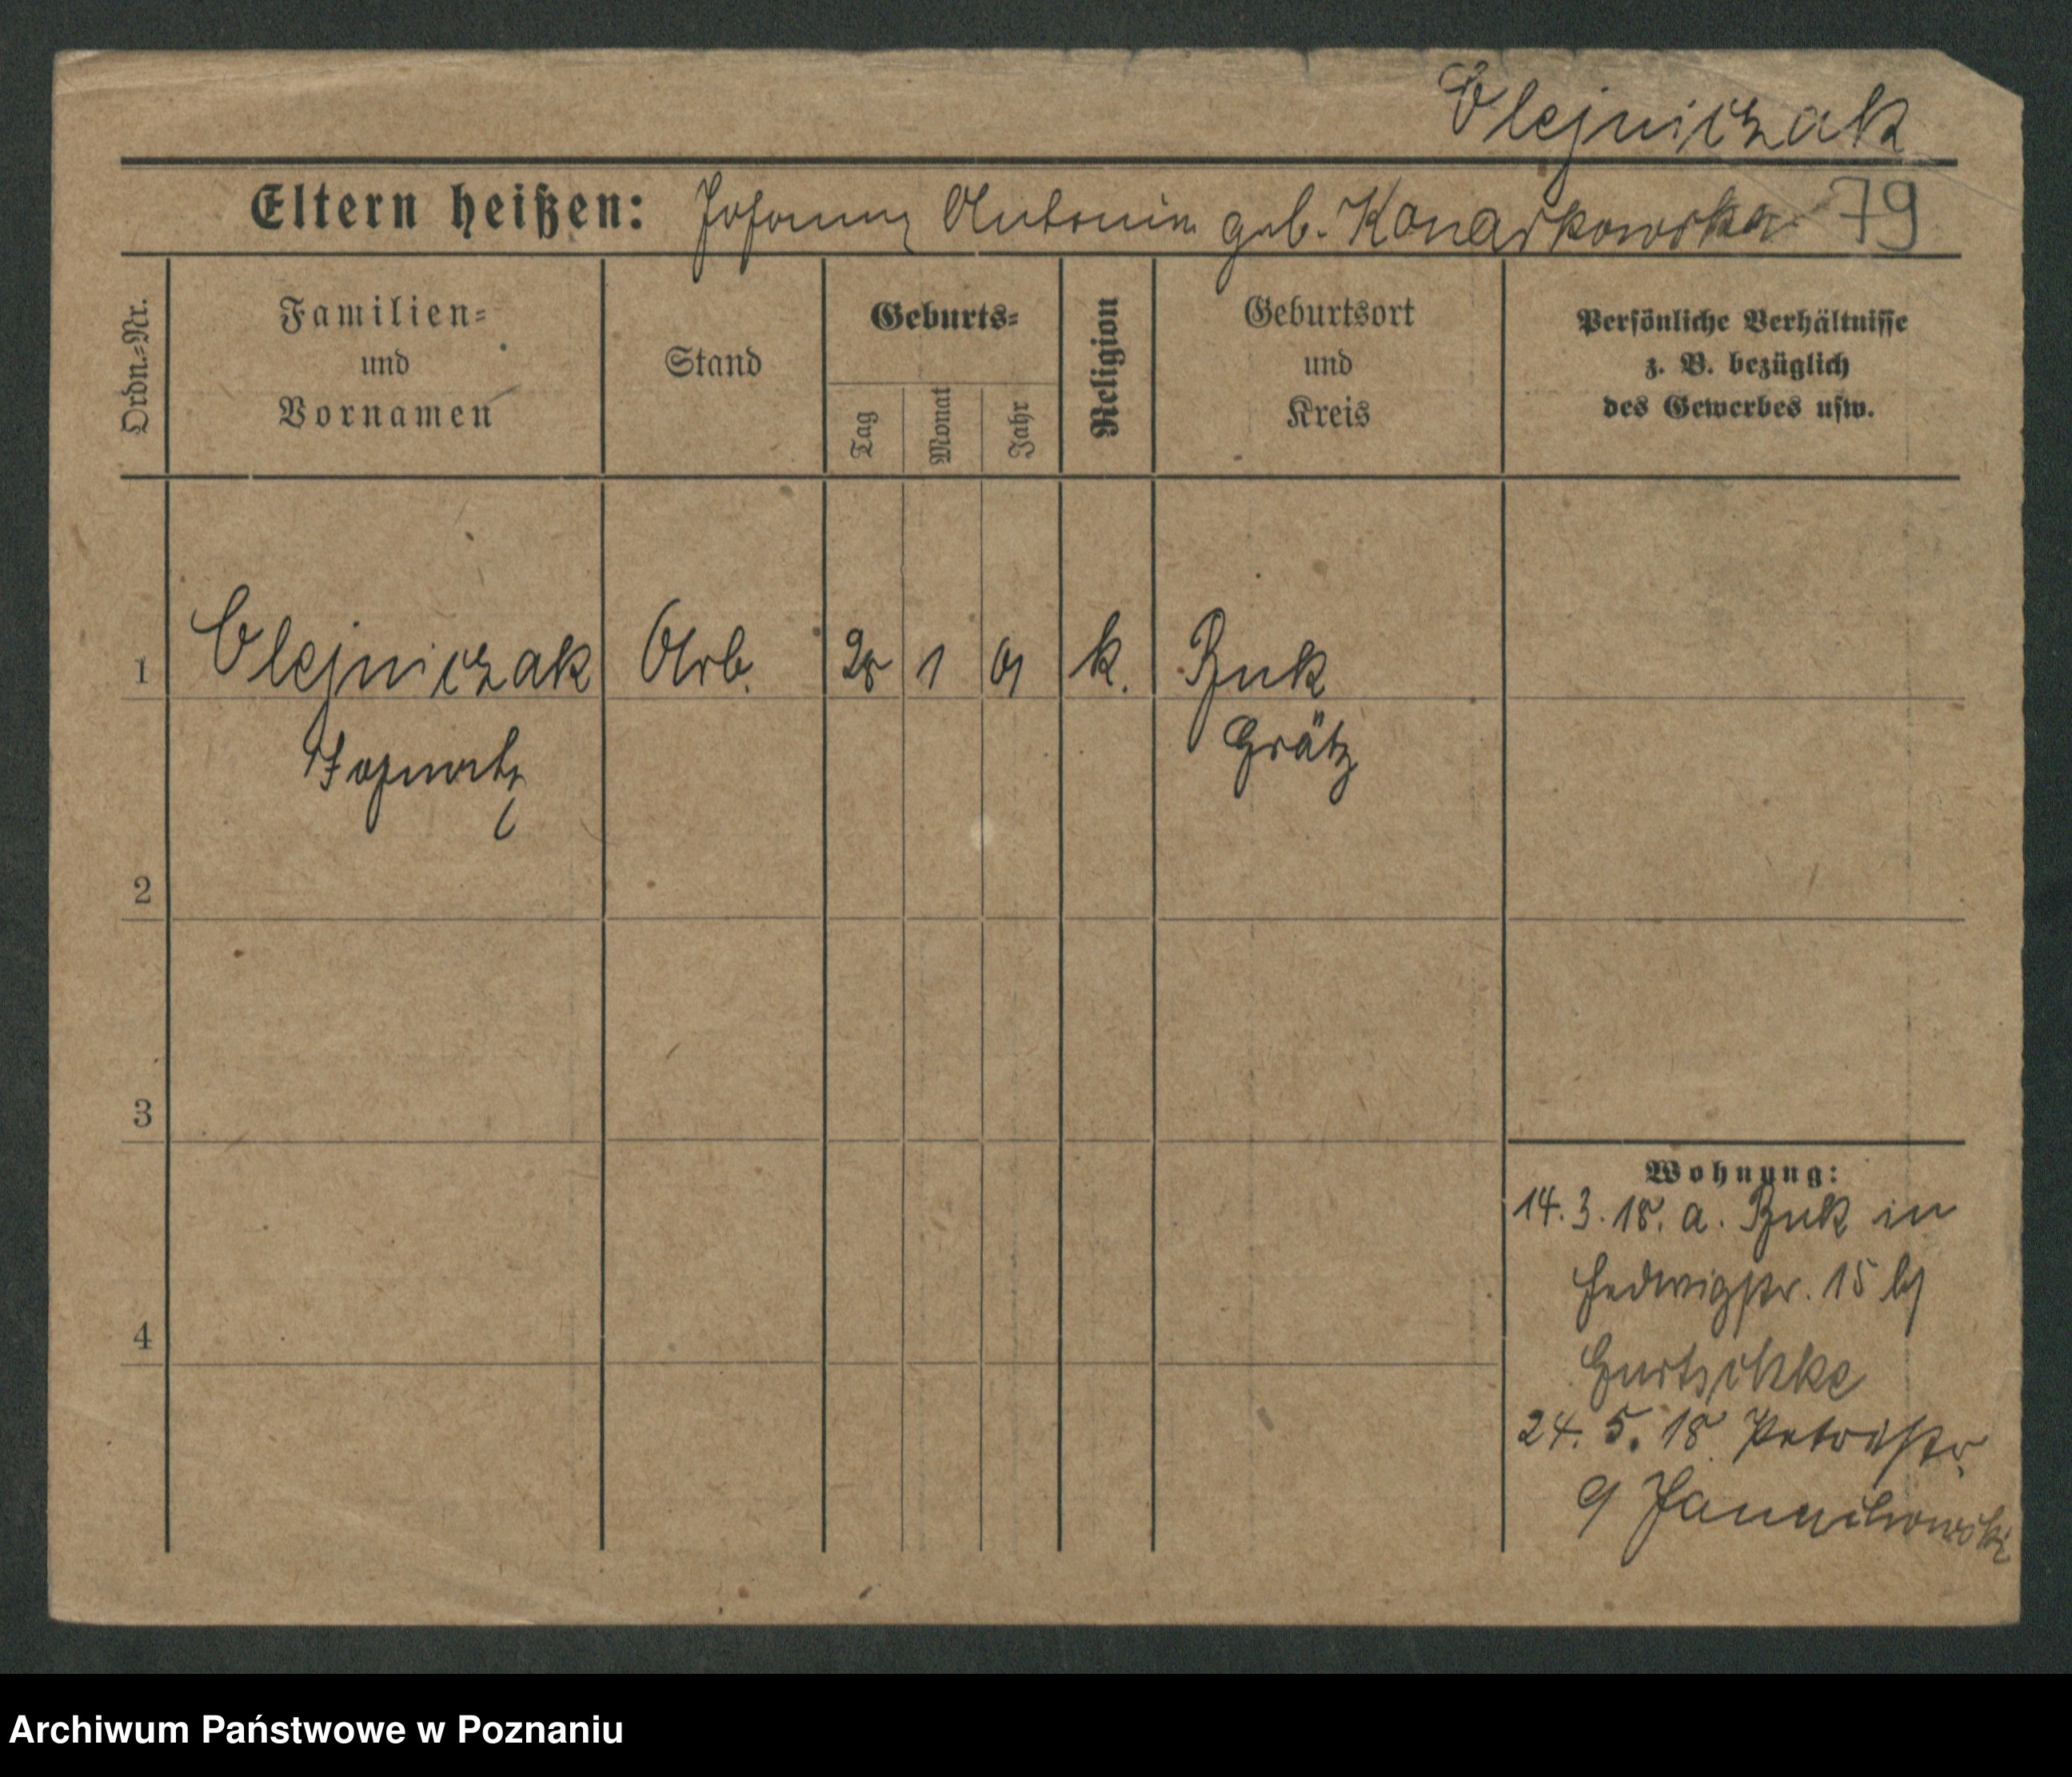 Olejniczak
Eltern heißen: Johann Antonin geb. Konarkowska 79
Ordn.=Nr.
Familien=
und
Vornamen
Stand
Geburts=
Tag
Monat
Jahr
Religion
Geburtsort
und
Kreis
Persönliche Verhältnisse
z. B. bezüglich
des Gewerbes usw.
1 Olejniczak Arb. 28 1 01 k. Buk
Ignatz Grätz
2
3
4
Wohnung:
14. 3. 18. a. Buk in
Hedwigstr. 15 bj
24. 5. 18 Petristr.
9
Archiwum Państwowe w Poznaniu